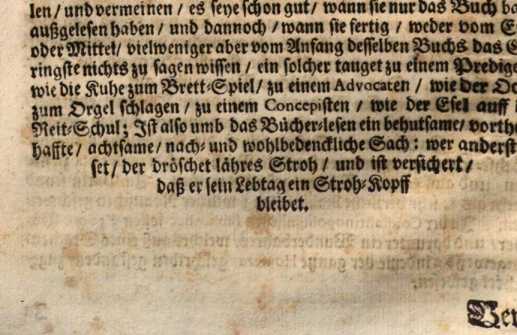 len / und vermeinen / es seye schon gut / wann sie nur das Buch
außgelesen haben / und dannoch / wann sie fertig / weder vom
oder Mittel / vielweniger aber vom Anfang desselben Buchs das
ringste nichts zu sagen wissen / ein solcher tauget zu einem
wie die Kuhe zum Brett-Spiel / zu einem Advocaten / wie der
zum Orgel schlagen / zu einem Concepisten / wie der Esel auff
Reit-Schul; Ist also umb das Bücher-lesen ein behutsame /
haffte / achtsame / nach- und wohlbedenckliche Sach: wer
set / der dröschet lähres Stroh / und ist versichert /
daß er sein Lebtag ein Stroh-Kopff
bleibet.